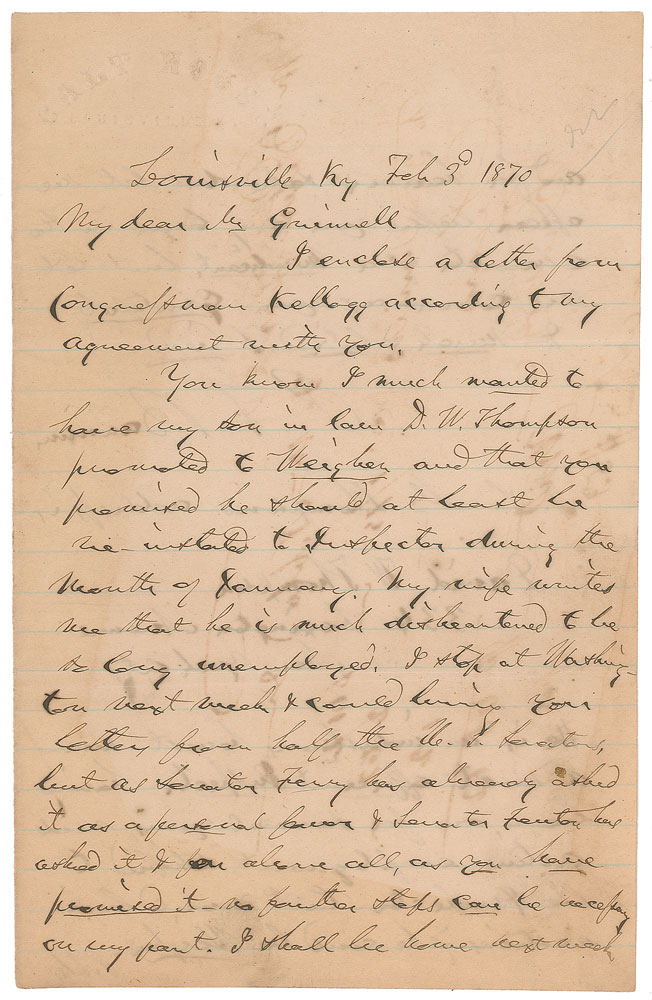 Louisville Ky Feb 3d 1870
My dear Mr Grinnell
I enclose a letter from
Congressman Kellogg according to my
agreement with you.
You know I much wanted to
have my son in law D. W. Thompson
promoted to Weigher and that you
promised he should at least be
re-instated to Inspector during the
Month of January. My wife writes
me that he is much disheartened to be
so long unemployed. I stop at Washing-
ton next week & could bring you
letters from half the U. S. Senators,
but as Senator Ferry has already asked
it as a personal favor & Senator Fenton has
asked it & above all, as you have
promised it - no further steps can be necessary
on my part. I shall be home next week